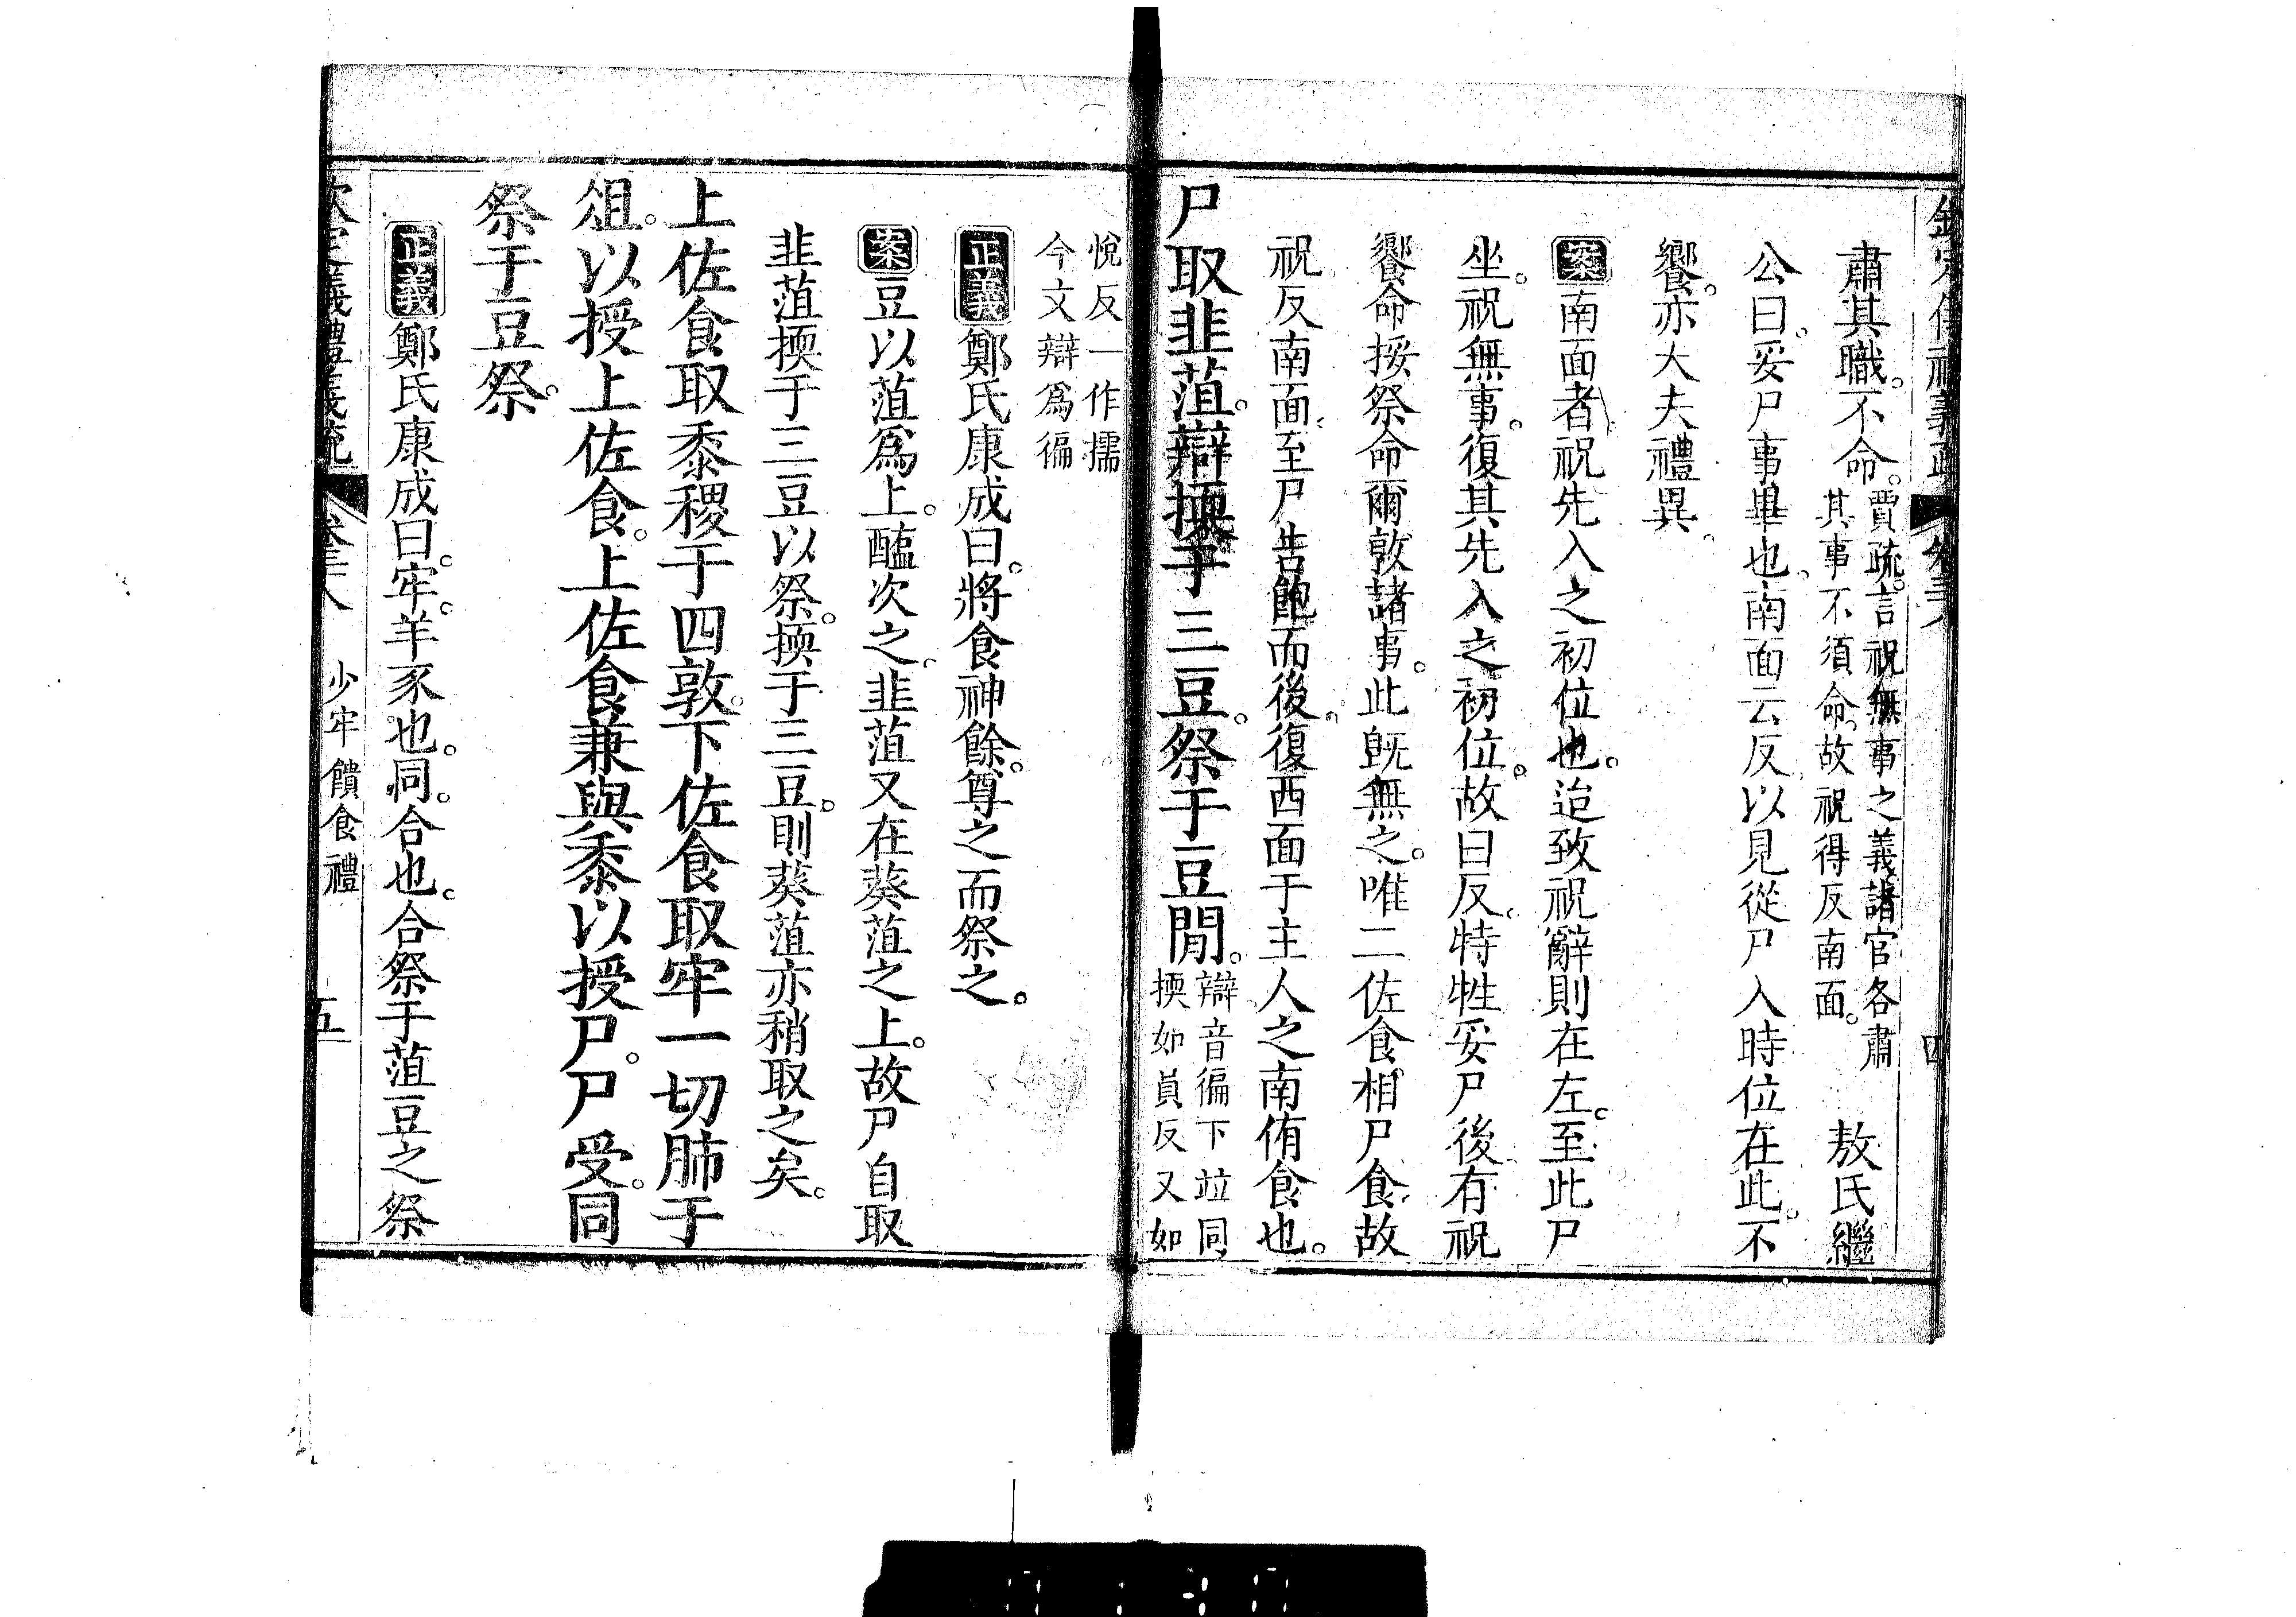 欽定儀禮義疏 卷三十八 四
肅其職。不命。賈疏。言祝無事之義。諸官各肅其事不須命。故祝得反南面。敖氏繼
公曰。妥尸事畢也。南面云反。以見從尸入時位在此。不
饗。亦大夫禮異。
案南面者。祝先入之初位也。迨致祝辭則在左。至此尸
坐。祝無事。復其先入之初位。故曰反。特牲妥尸後有祝
饗命挼祭命爾敦諸事。此旣無之。唯二佐食相尸食。故
祝反南面。至尸告飽而後復西面于主人之南侑食也。
尸取韭菹。辯擩于三豆。祭于豆閒。辯音徧下竝同擩如員反又如
悅反一作擩
今文辯爲徧
正義鄭氏康成曰。將食神餘。尊之而祭之。
案豆以菹爲上。醢次之。韭菹又在葵菹之上。故尸自取
韭菹擩于三豆以祭。擩于三豆。則葵菹亦稍取之矣。
上佐食取黍稷于四敦。下佐食取牢一切肺于
俎。以授上佐食。上佐食兼與黍以授尸。尸受。同
祭于豆祭。
正義鄭氏康成曰。牢。羊豕也。同。合也。合祭于菹豆之祭
欽定儀禮義疏 卷三十八 少牢饋食禮 五